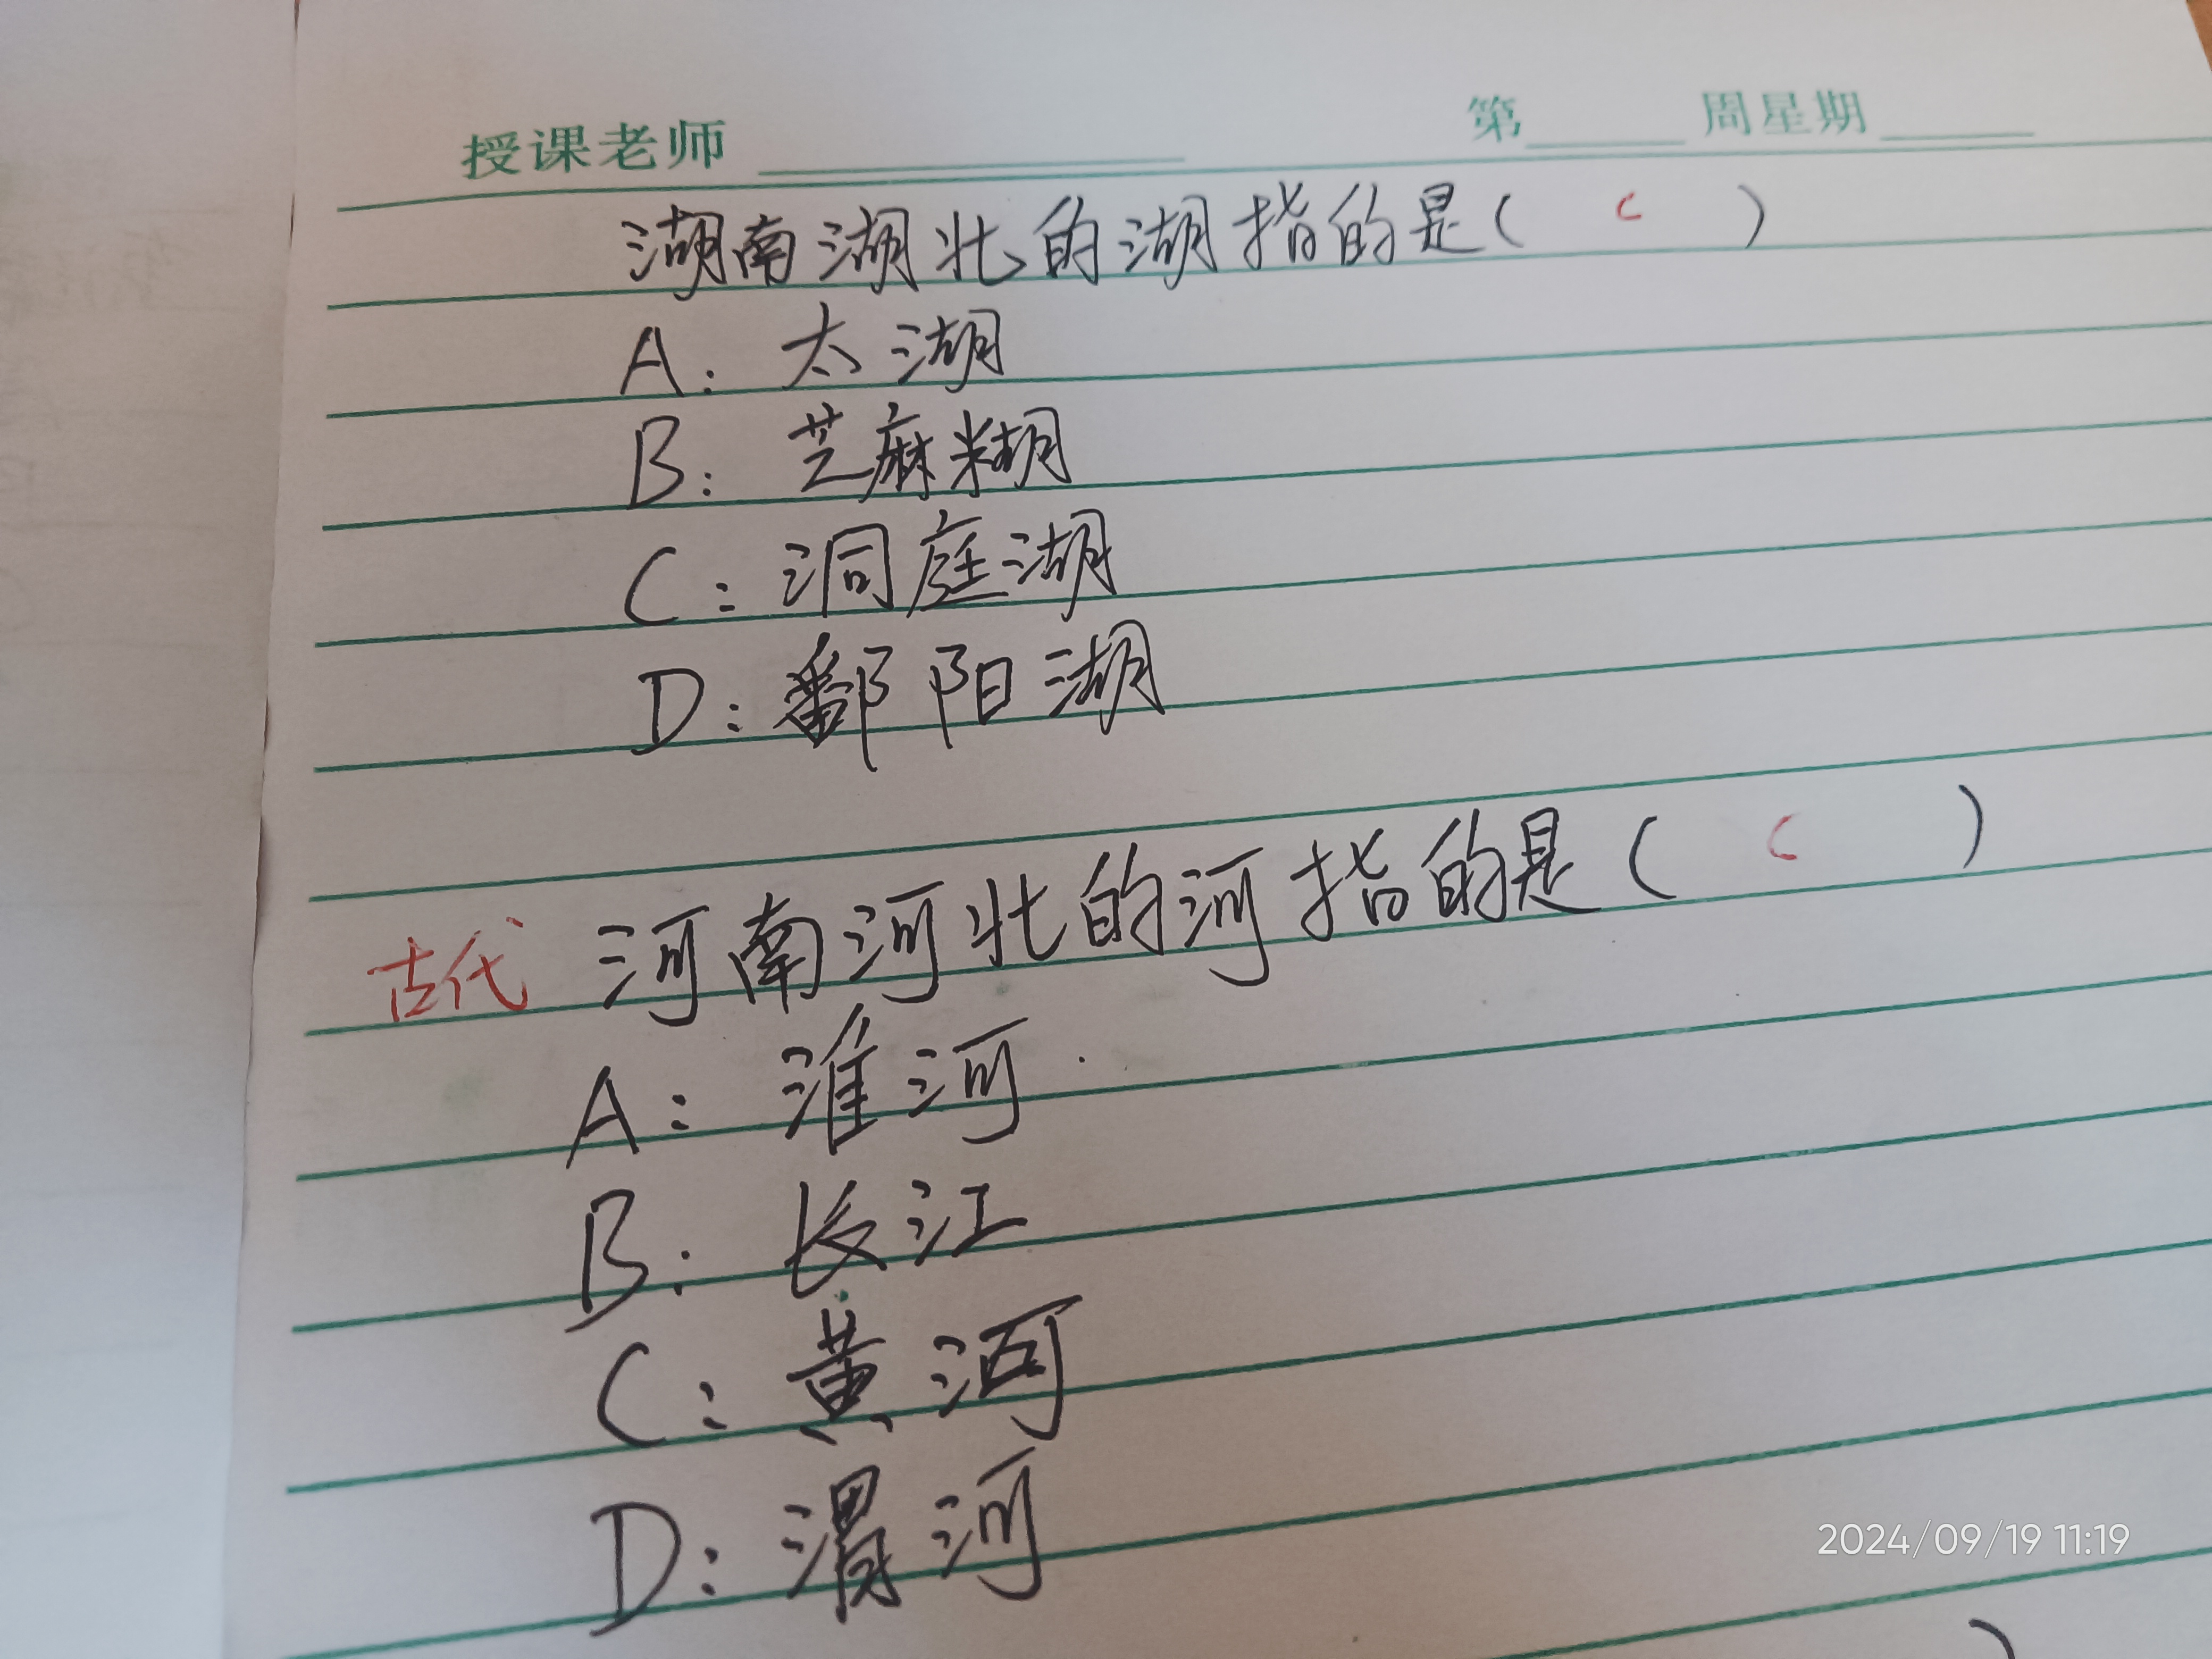 授课老师 第 周星期
湖南湖北的湖指的是( C )
A: 太湖
B: 芝麻糊
C: 洞庭湖
D: 鄱阳湖
古代 河南河北的河指的是( C )
A: 淮河
B: 长江
C: 黄河
D: 渭河
2024/09/19 11:19
)